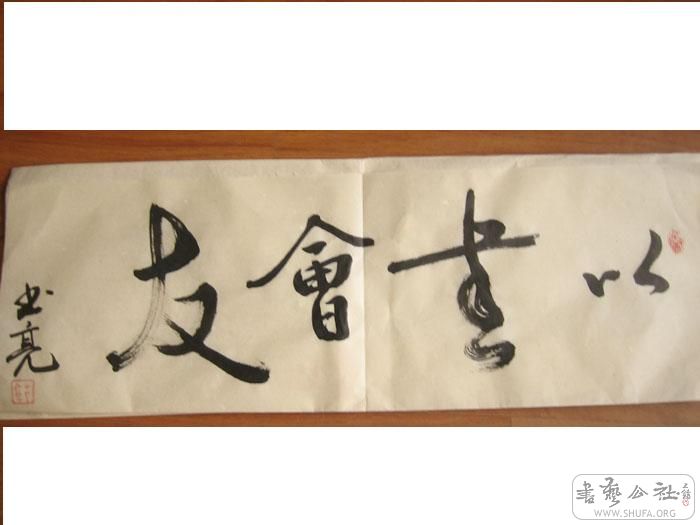 以書會友
书亮
書藝公社
WWW.SHUFA.ORG